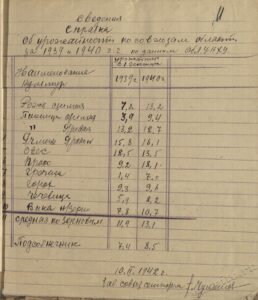 11
Сведения
Справка
Об урожайности по совхозам области
за 1939 и 1940 г.г. по данным ОблУНХУ
Наименование культур
Урожайность с 1 гектара
1939г 1940г.
Рожь озимая 7,8 13,2
Пшеница озимая 3,9 9,4
" Яровая 13,2 12,7
Ячмень Яровой 15,8 16,1
Овес 18,5 13,5
Просо 9,2 18,1
Гречиха 1,4
Горох 9,3 9,6
Чечевица 5,9 8,2
Вика 7,8 10,7
Средняя по зерновым 11,9 13,1
Подсолнечник 7,4 8,5
10.II.1942г.
Зав совхоз сектора